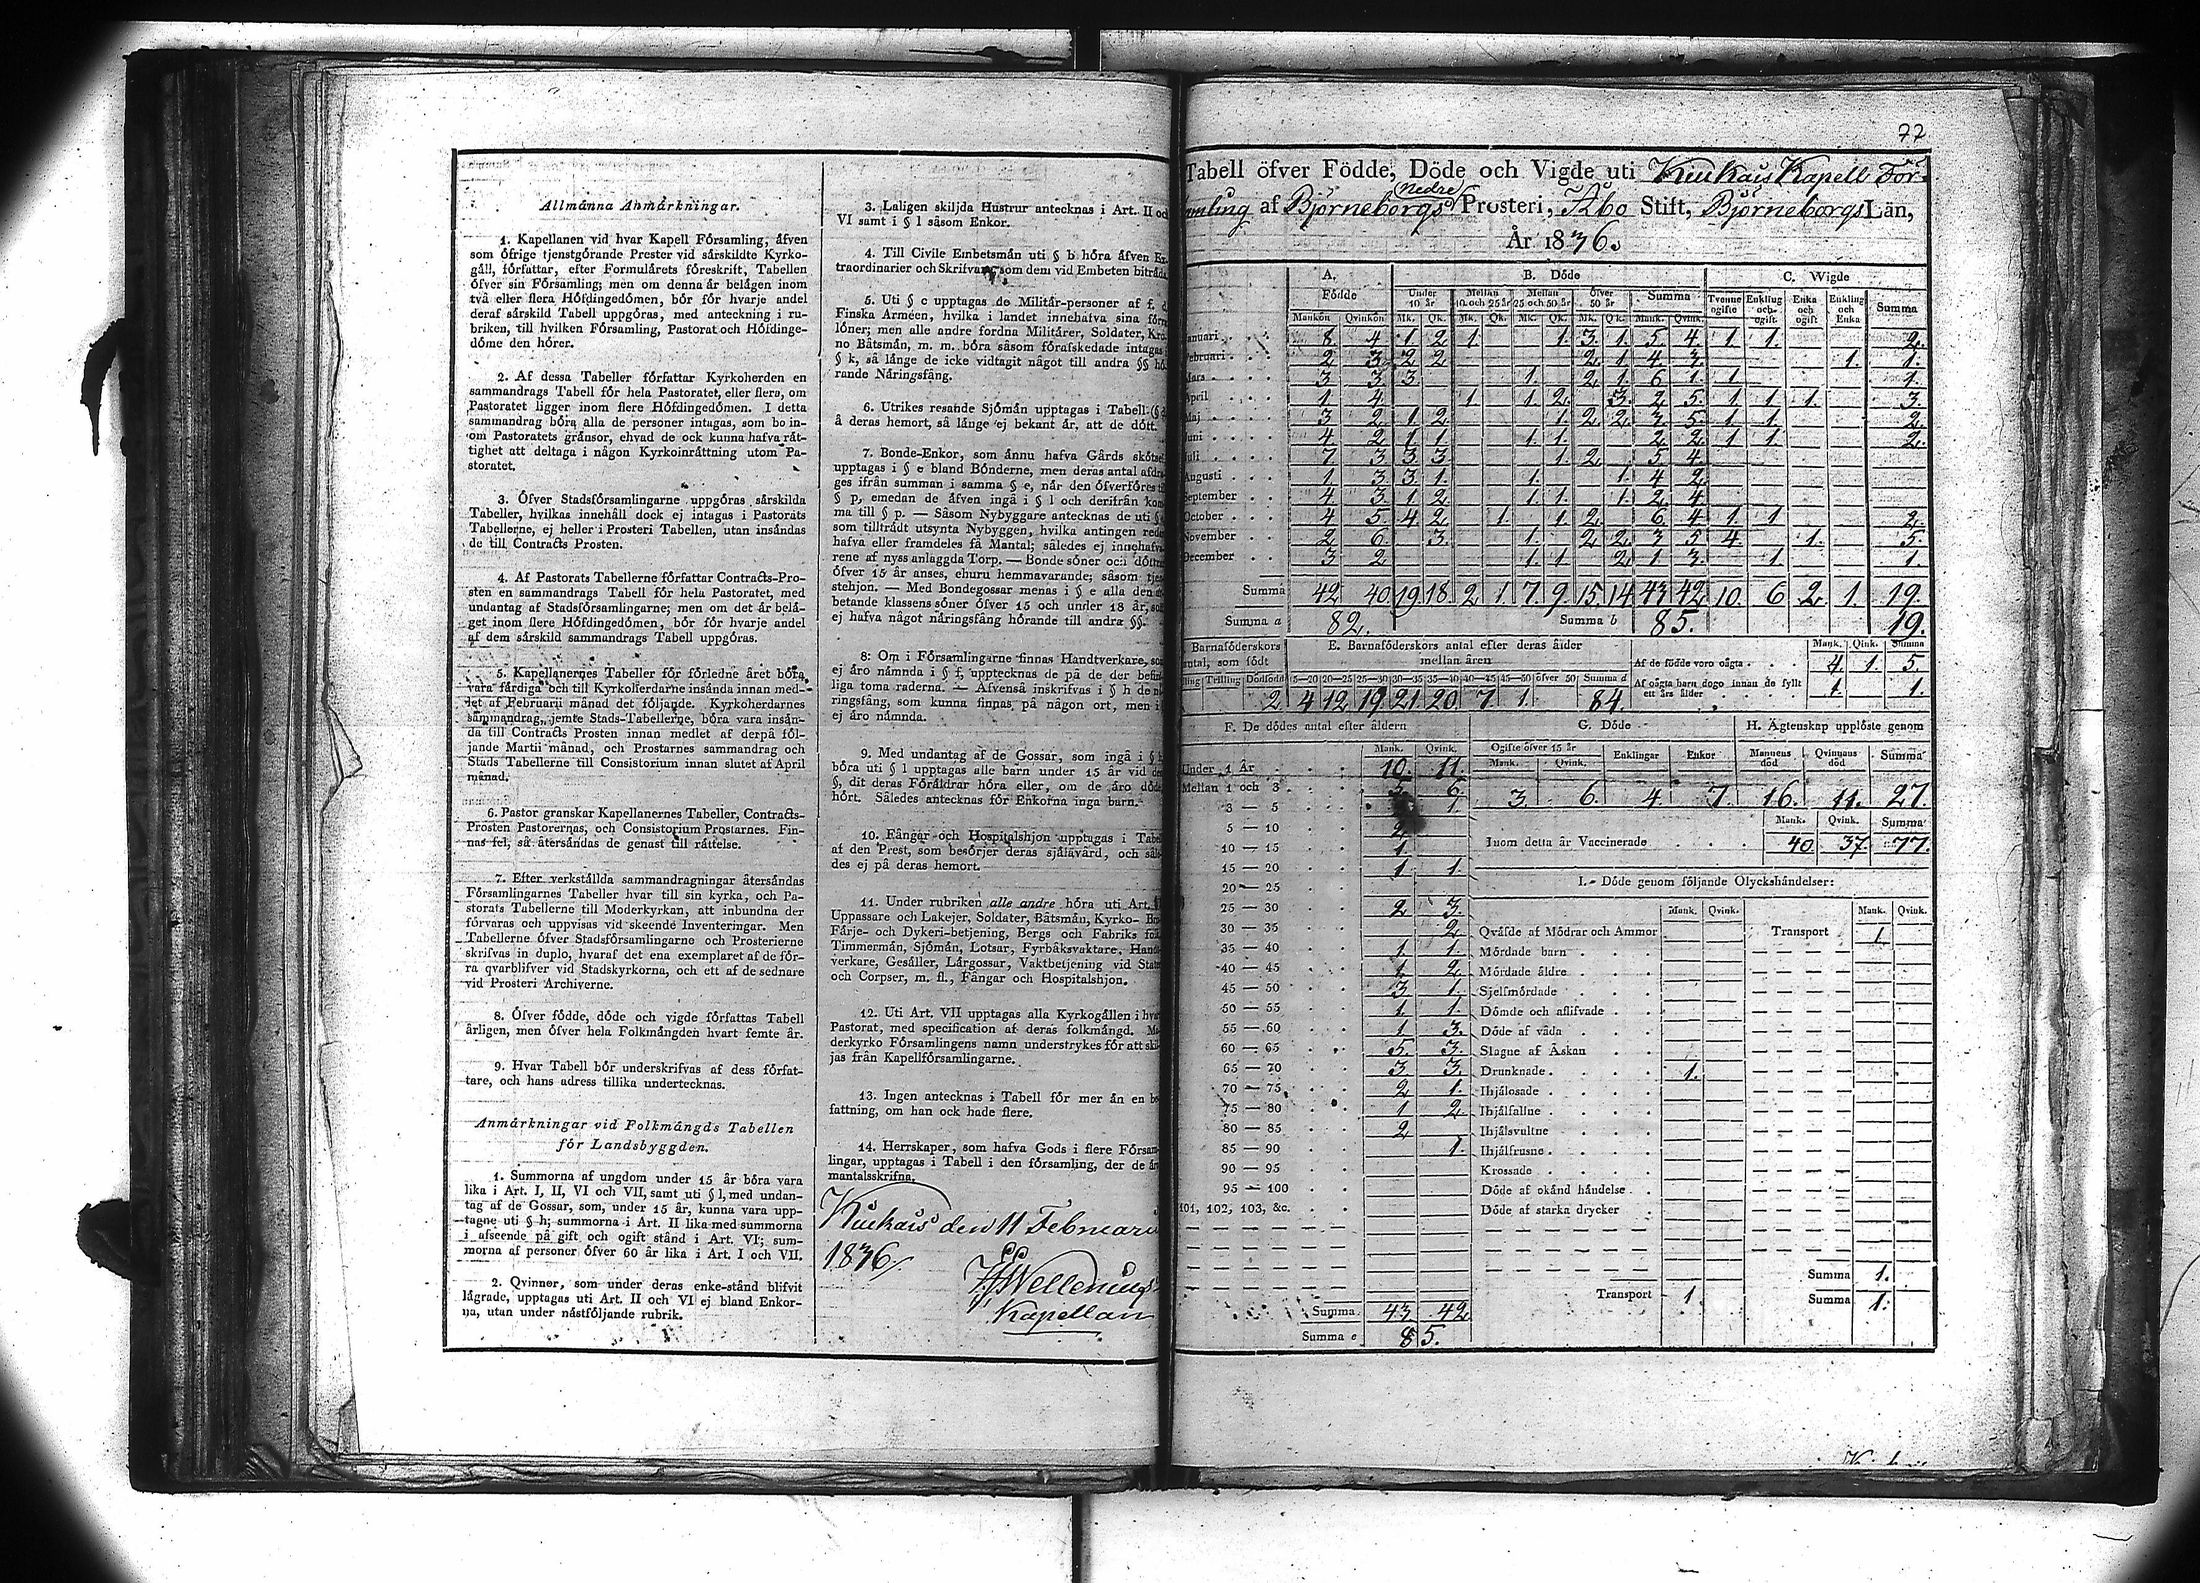 Allmånna Anmårkningar.
1. Kapellanen vid hvar Kapell Fórsamling, åfven
som ófrige tjenstgórande Prester vid sårskildte Kyrko-
gåll, fórfattar, efter Formulårets fóreskrift, Tabellen
ófver sin Fórsamling; men om denna år belågen inom
två eller flera Hófdingedómen, bór fór hvarje andel
deraf sårskild Tabell uppgóras, med anteckning i ru-
briken, till hvilken Fórsamling, Pastorat och Hófdinge-
dóme den hórer.
2. Af dessa Tabeller fórfattar Kyrkoherden en
sammandrags Tabell fór hela Pastoratet, eller flera, om
Pastoratet ligger inom flere Hófdingedómen. I detta
sammandrag bóra alla de personer intagas, som bo in-
om Pastoratets grånsor, ehvad de ock kunna hafva råt-
tighet att deltaga i någon Kyrkoinråttning utom Pa-
storatet.
3. Ófver Stadsfórsamlingarne uppgóras sårskilda
Tabeller, hvilkas innehåll dock ej intagas i Pastorats
Tabellerne, ej heller i Prosteri Tabellen, utan insåndas
de till Contracts Prosten.
4. Af Pastorats Tabellerne fórfattar Contracts-Pro-
sten en sammandrags Tabell fór hela Pastoratet, med
undantag af Stadsfórsamlingarne; men om det år belå-
get inom flere Hófdingedómen, bór fór hvarje andel
af dem sårskild sammandrags Tabell uppgóras.
5. Kapellanernes Tabeller fór fórledne året bóra
vara fårdiga och till Kyrkoherdarne insånda innan med-
let af Februarii månad det fóljande. Kyrkoherdarnes
sammandrag, jemte Stads-Tabellerne, bóra vara insån-
da till Contracts Prosten innan medlet af derpå fól-
jande Martii månad, och Prostarnes sammandrag och
Stads Tabellerne till Consistorium innan slutet af April
månad.
6. Pastor granskar Kapellanernes Tabeller, Contracts-
Prosten Pastorernas, och Consistorium Prostarnes. Fin-
nas fel, så återsåndas de genast till råttelse.
7. Efter verkstållda sammandragningar återsåndas
Fórsamlingarnes Tabeller hvar till sin kyrka, och Pa-
storats Tabellerne till Moderkyrkan, att inbundna der
fórvaras och uppvisas vid skeende Inventeringar. Men
Tabellerne ófver Stadsfórsamlingarne och Prosterierne
skrifvas in duplo, hvaraf det ena exemplaret af de fór-
ra qvarblifver vid Stadskyrkorna, och ett af de sednare
vid Prosteri Archiverne.
8. Ófver fódde, dóde och vigde fórfattas Tabell
årligen, men ófver hela Folkmångden hvart femte år.
9. Hvar Tabell bór underskrifvas af dess fórfat-
tare, och hans adress tillika undertecknas.
Anmårkningar vid Folkmångds Tabellen
fór Landsbyggden.
1. Summorna af ungdom under 15 år bóra vara
lika i Art. I, II, VI och VII, samt uti § l, med undan-
tag af de Gossar, som, under 15 år, kunna vara upp-
tagne uti § h; summorna i Art. II lika med summorna
i afseende på gift och ogift stånd i Art. VI; sum-
morna af personer ófver 60 år lika i Art. I och VII.
2. Qvinnor, som under deras enke-stånd blifvit
lågrade, upptagas uti Art. II och VI ej bland Enkor-
na, utan under nåstfóljande rubrik.
3. Laligen skiljda Hustrur antecknas i Art. II och
VI samt i § l såsom Enkor.
4. Till Civile Embetsmån uti § b hóra åfven Ex-
traordinarier och Skrifvare, som dem vid Embeten bitråda.
5. Uti § c upptagas de Militår-personer af f. d.
Finska Arméen, hvilka i landet innehafva sina fórra
lóner; men alle andre fordna Militårer, Soldater, Kro-
no Båtsmån, m. m. bóra såsom fórafskedade intagas
§ k, så långe de icke vidtagit något till andra §§ hó-
rande Nåringsfång.
6. Utrikes resande Sjómån upptagas i Tabell (§
å deras hemort, så långe ej bekant år, att de dótt.
7. Bonde-Enkor, som ånnu hafva Gårds skótsel
upptagas i § e bland Bónderne, men deras antal afdra-
ges ifrån summan i samma § e, når den ófverfóres till
§ p, emedan de åfven ingå i § l och derifrån kom-
ma till § p. — Såsom Nybyggare antecknas de uti §
som tilltrådt utsynta Nybyggen, hvilka antingen redan
hafva eller framdeles få Mantal; således ej innehafva-
rene af nyss anlaggda Torp. — Bonde sóner och dóttrar
ófver 15 år anses, ehuru hemmavarande, såsom tjen-
stehjon. — Med Bondegossar menas i § e alla den ar-
betande klassens sóner ófver 15 och under 18 år, som
ej hafva något nåringsfång hórande till andra §§.
8. Om i Fórsamlingarne finnas Handtverkare, som
ej åro nåmnda i § f, upptecknas de på de der befint-
liga toma raderna. — Åfvenså inskrifvas i § h de nå-
ringsfång, som kunna finnas på någon ort, men i
ej åro nåmnda.
9. Med undantag af de Gossar, som ingå i § h
bóra uti § l upptagas alle barn under 15 år vid den
§, dit deras Fóråldrar hóra eller, om de åro dóde
hórt. Således antecknas fór Enkorna inga barn.
10. Fångar och Hospitalshjon upptagas i Tabell
af den Prest, som besórjer deras sjålavård, och såle-
des ej på deras hemort.
11. Under rubriken alle andre hóra uti Art.
Uppassare och Lakejer, Soldater, Båtsmån, Kyrko- Bro-
Fårje- och Dykeri-betjening, Bergs och Fabriks folk
Timmermån, Sjómån, Lotsar, Fyrbåksvaktare, Handt-
verkare, Gesåller, Lårgossar, Vaktbetjening vid Stater
och Corpser, m. fl., Fångar och Hospitalshjon.
12. Uti Art. VII upptagas alla Kyrkogållen i hvart
Pastorat, med specification af deras folkmångd. Mo-
derkyrko Fórsamlingens namn understrykes fór att skil-
jas från Kapellfórsamlingarne.
13. Ingen antecknas i Tabell fór mer ån en be-
fattning, om han ock hade flere.
14. Herrskaper, som hafva Gods i flere Fórsam-
lingar, upptagas i Tabell i den fórsamling, der de åro
mantalsskrifna.
Kiukais den 11 Februari
1836
Wellenius
Kapellan
77
Tabell öfver Födde, Döde och Vigde uti Kiukais Kapell För-
Nedre
amling af Björneborgs Prosteri, Åbo Stift, Björneborgs Län,
År 1836.
A. B. Dóde C. Wigde
Födde Under 10 år Mellan 10 och 25 år Mellan 25 och 50 år Öfver 50 år Summa Tvenne ogifte Enkling och ogift Enka och ogift Enkling och Enka Summa
Mankön Qvinkön Mk. Qk. Mk. Qk. Mk. Qk. Mk. Qk. Mank. Qvink.
Januari 8 4 1 2 1 1 3 1 5 4 1 1 2
Februari 2 3 2 2 2 1 4 3 1 1
Mars 3 3 3 1 2 1 6 1 1 1
April 1 4 1 1 2 3 2 5 1 1 1 3
Maj 3 2 1 2 1 2 2 3 5 1 1 2
Juni 4 2 1 1 1 1 2 2 1 1 2
Juli 7 3 3 3 1 2 5 4
Augusti 1 3 3 1 1 1 4 2
September 4 3 1 2 1 1 1 2 4
October 4 5 4 2 1 1 2 6 4 1 1 2
November 2 6 3 1 2 2 3 5 4 1 5
December 3 2 1 1 2 1 3 1 1
Summa 42 40 19 18 2 1 7 9 15 14 43 42 10 6 2 1 19
Summa a 82 Summa b 85 19
Barnafóderskors antal, som fódt E. Barnafóderskors antal efter deras ålder mellan åren Mank. Qvink. Summa
Af de födde voro oägta 4 1 5
Tvilling Trilling Dödfödd 15—20 20—25 25—30 30—35 35—40 40—45 45—50 öfver 50 Summa d
Af oägta barn dogo innan de fyllt ett års ålder 1 1
2 4 12 19 21 20 7 1 84
F. De dódes antal efter åldern G. Dóde H. Ägtenskap upplóste genom
Mank. Qvink. Ogifte öfver 15 år Mank. Qvink. Enklingar Enkor Mannens död Qvinnans död Summa
Under 1 År 10 11
Mellan 1 och 3 5 6
3 6 4 7 16 11 27
3 — 5 1
5 — 10 2
10 — 15 1
15 — 20 1 1
20 — 25
25 — 30 2 3
30 — 35 2
35 — 40 1 1
40 — 45 1 2
45 — 50 3 1
50 — 55 1 1
55 — 60 1 3
60 — 65 5 3
65 — 70 3 3
70 — 75 2 1
75 — 80 1 2
80 — 85 2
85 — 90 1
90 — 95
95 — 100
101, 102, 103, &c.
Summa 43 42
Summa e 85
Mank. Qvink. Summa
Inom detta år Vaccinerade 40 37 77
I. Dóde genom fóljande Olyckshåndelser:
Mank. Qvink. Mank. Qvink.
Qvåfde af Módrar och Ammor Transport 1
Mórdade barn
Mórdade åldre
Sjelfmórdade
Dómde och aflifvade
Dóde af våda
Slagne af Åskan
Drunknade 1
Ihjålosade
Ihjålfallne
Ihjålsvultne
Ihjålfrusne
Krossade
Dóde af okånd håndelse
Dóde af starka drycker
Summa 1
Transport 1 Summa 1